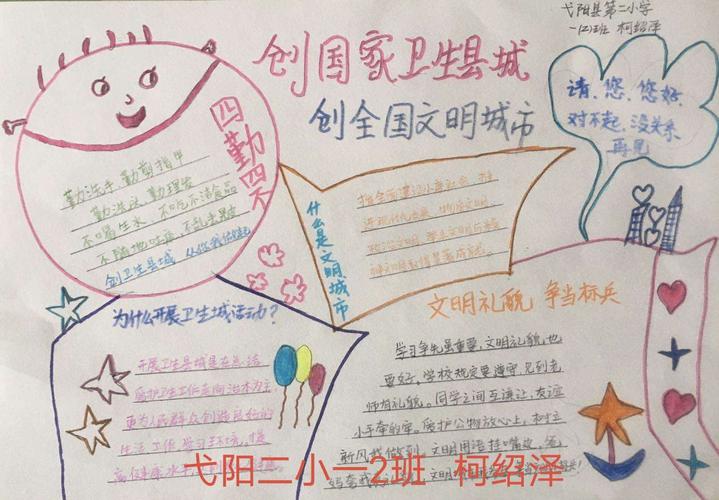 弋阳县第二小学
一(2)班 柯绍泽
创国家卫生县城
创全国文明城市
请、您、您好、
对不起、没关系
再见
四勤四不
勤洗手、勤剪指甲
勤洗澡、勤理发
不喝生水、不吃不洁食品
不随地吐痰、不乱丢果皮
创卫生县城 从你我做起
什么是文明城市
指全面建设小康社会,推
进现代化
物质文明
政治文明
文明礼貌 争当标兵
学习争先虽重要,文明礼貌也
要好。学校规定要遵守,见到老
师有礼貌。同学之间互谦让,友谊
小手牵的牢。爱护公物放心上,树立
新风我做到。文明用语挂嘴边,爸
为什么开展卫生城活动?
开展卫生县城是在
更为人民群众创造良好的
生活、工作、学习环境,提
高健康水平
弋阳二小一2班 柯绍泽